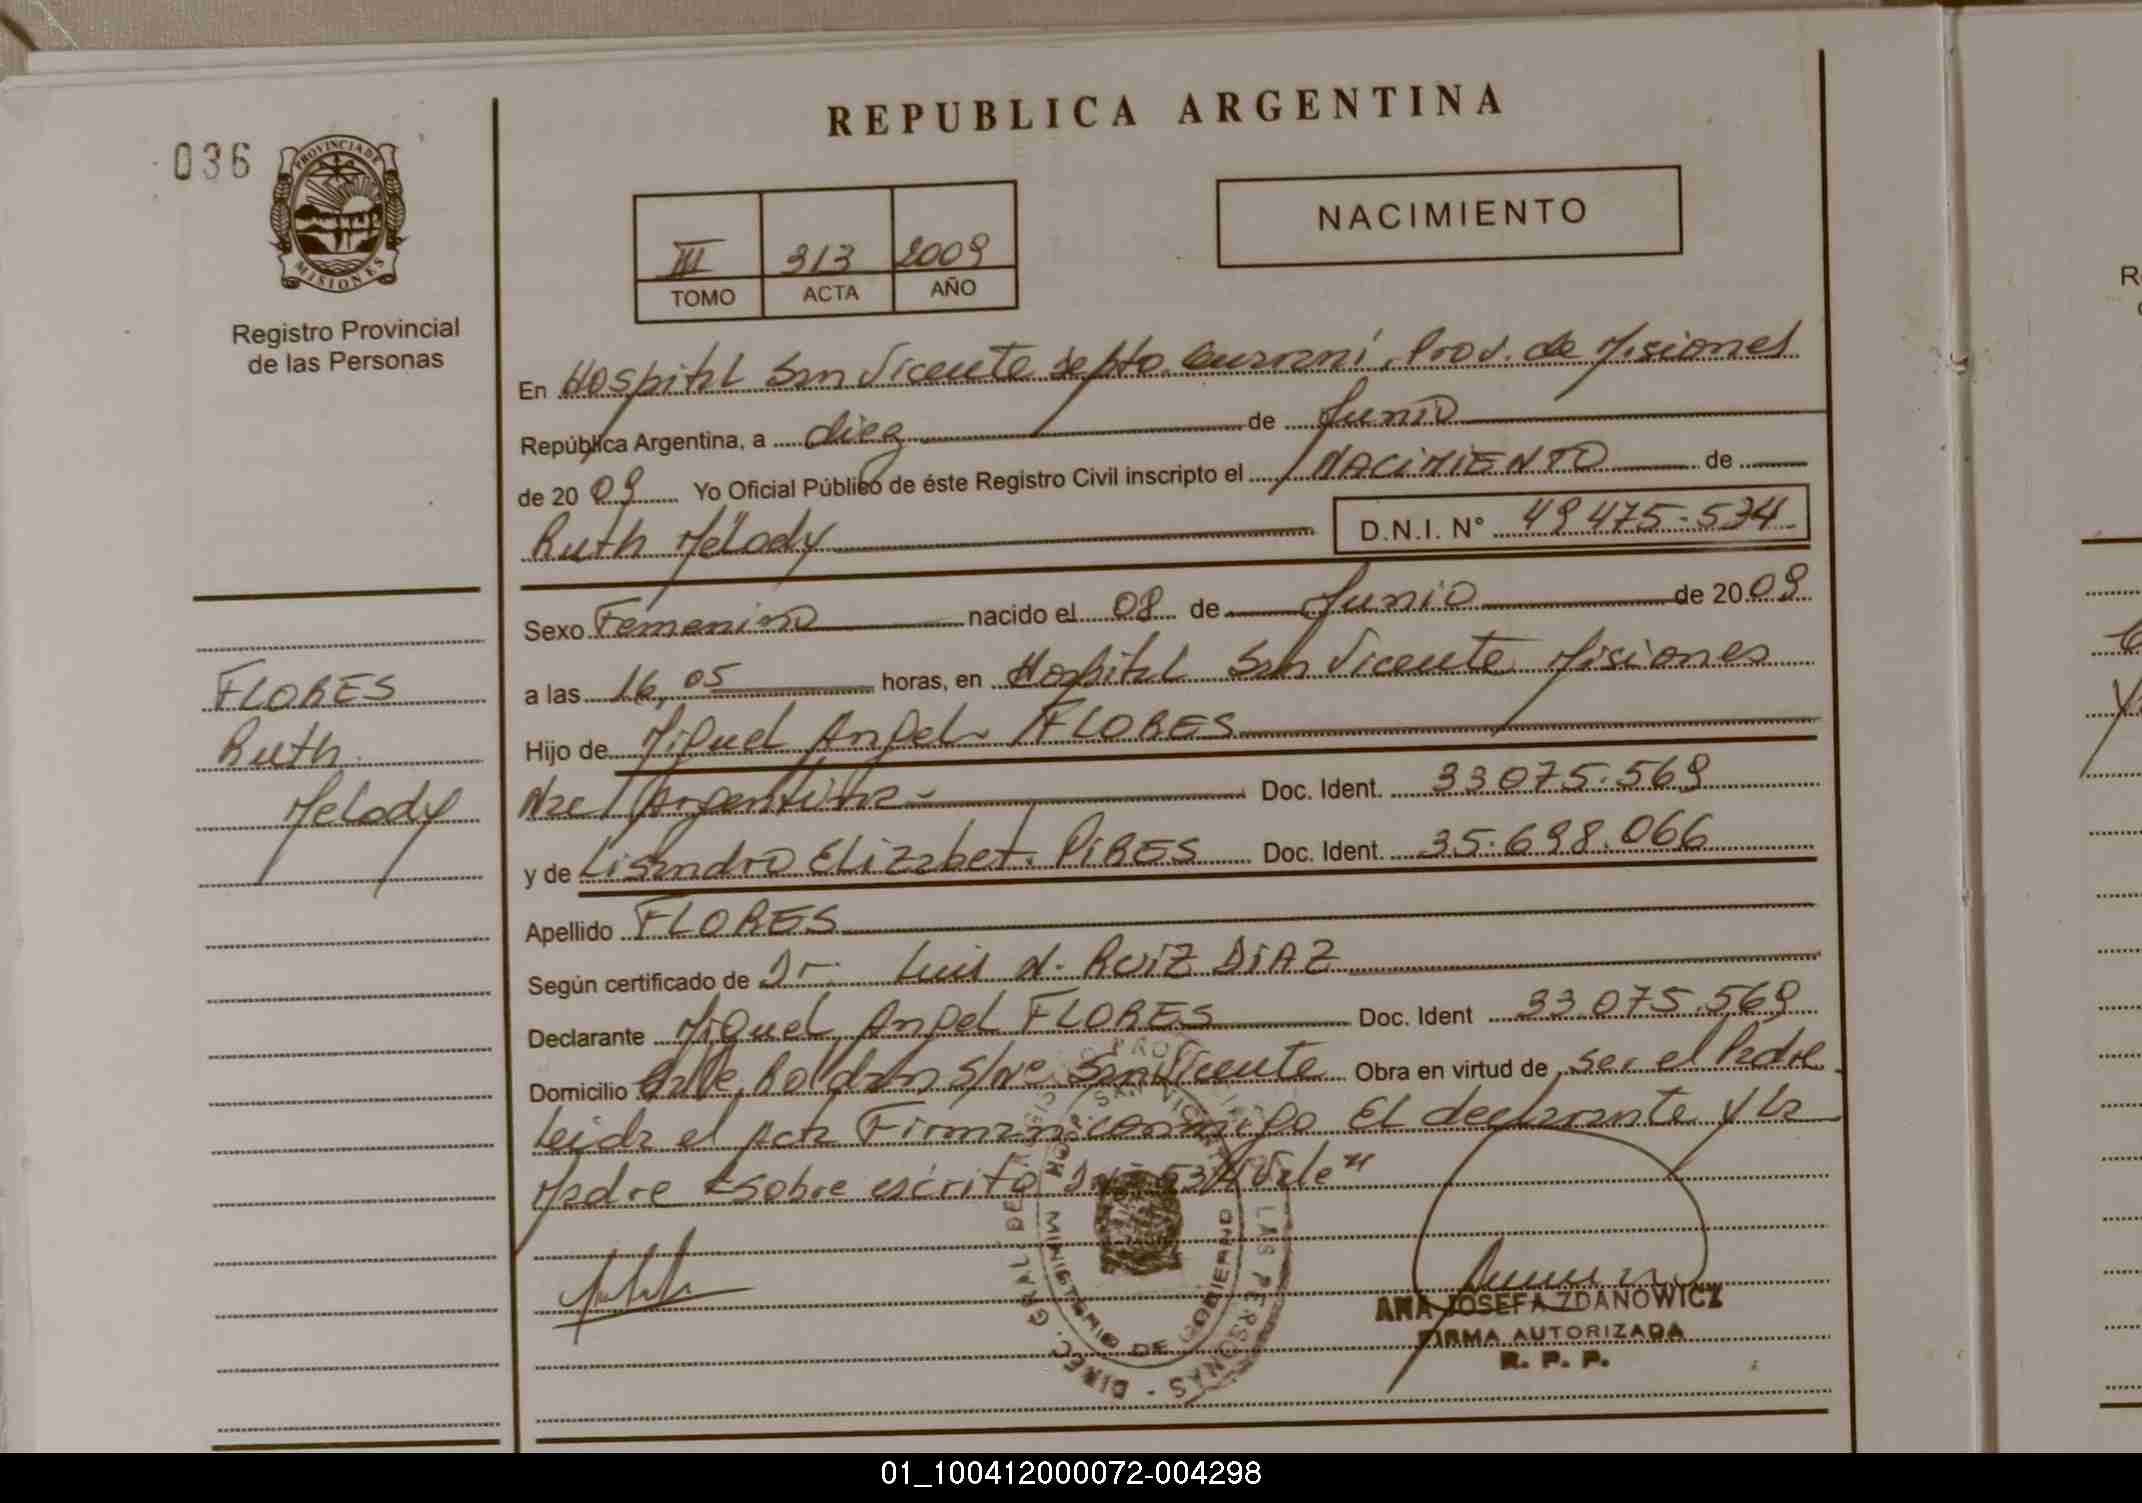 REPUBLICA ARGENTINA
036
PROVINCIA DE
MISIONES
Registro Provincial
de las Personas
NACIMIENTO
III 313 2009
TOMO ACTA AÑO
En Hospital San Vicente Depto Guaraní, Prov. de Misiones
República Argentina, a diez de Junio
de 2009 Yo Oficial Público de éste Registro Civil inscripto el NACIMIENTO de
Ruth Melody D.N.I. N° 49475-534
Sexo Femenino nacido el 08 de Junio de 2009
a las 16,05 horas, en Hospital San Vicente Misiones
Hijo de Miguel Angel FLORES
Nac Argentina Doc. Ident. 33075.569
y de Lisandro Elizabet PIRES Doc. Ident. 35.698.066
Apellido FLORES
Según certificado de Dr. Luis N. RUIZ DIAZ
Declarante Miguel Angel FLORES Doc. Ident 33.075.569
Domicilio Calle Roldan S/N° San Vicente Obra en virtud de ser el Padre
Leida el Acta Firman conmigo El declarante y la
Madre sobre escrito 534 Vale"
FLORES
Ruth
Melody
MINISTERIO DE GOBIERNO
LAS PERSONAS - DIREC. GRAL. DEL
SAN VICENTE
ANA JOSEFA ZDANOWICZ
FIRMA AUTORIZADA
R. P. P.
01_100412000072-004298